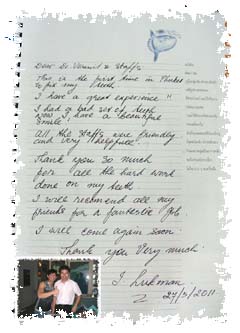 Dear Dr Veerawit & Staffs
This is the first time in Phuket
to fix my teeth.
I have a great experience"
I had a bad set of teeth
Now I have a Beautiful
Smile.
All the Staffs were friendly
and very "helpfull"
Thank you So much
for all the hard work
done on my teeth
I will recomend all my
friends for a fantastic Job.
I will come again soon.
Thank you Very much.
I
27/3/2011